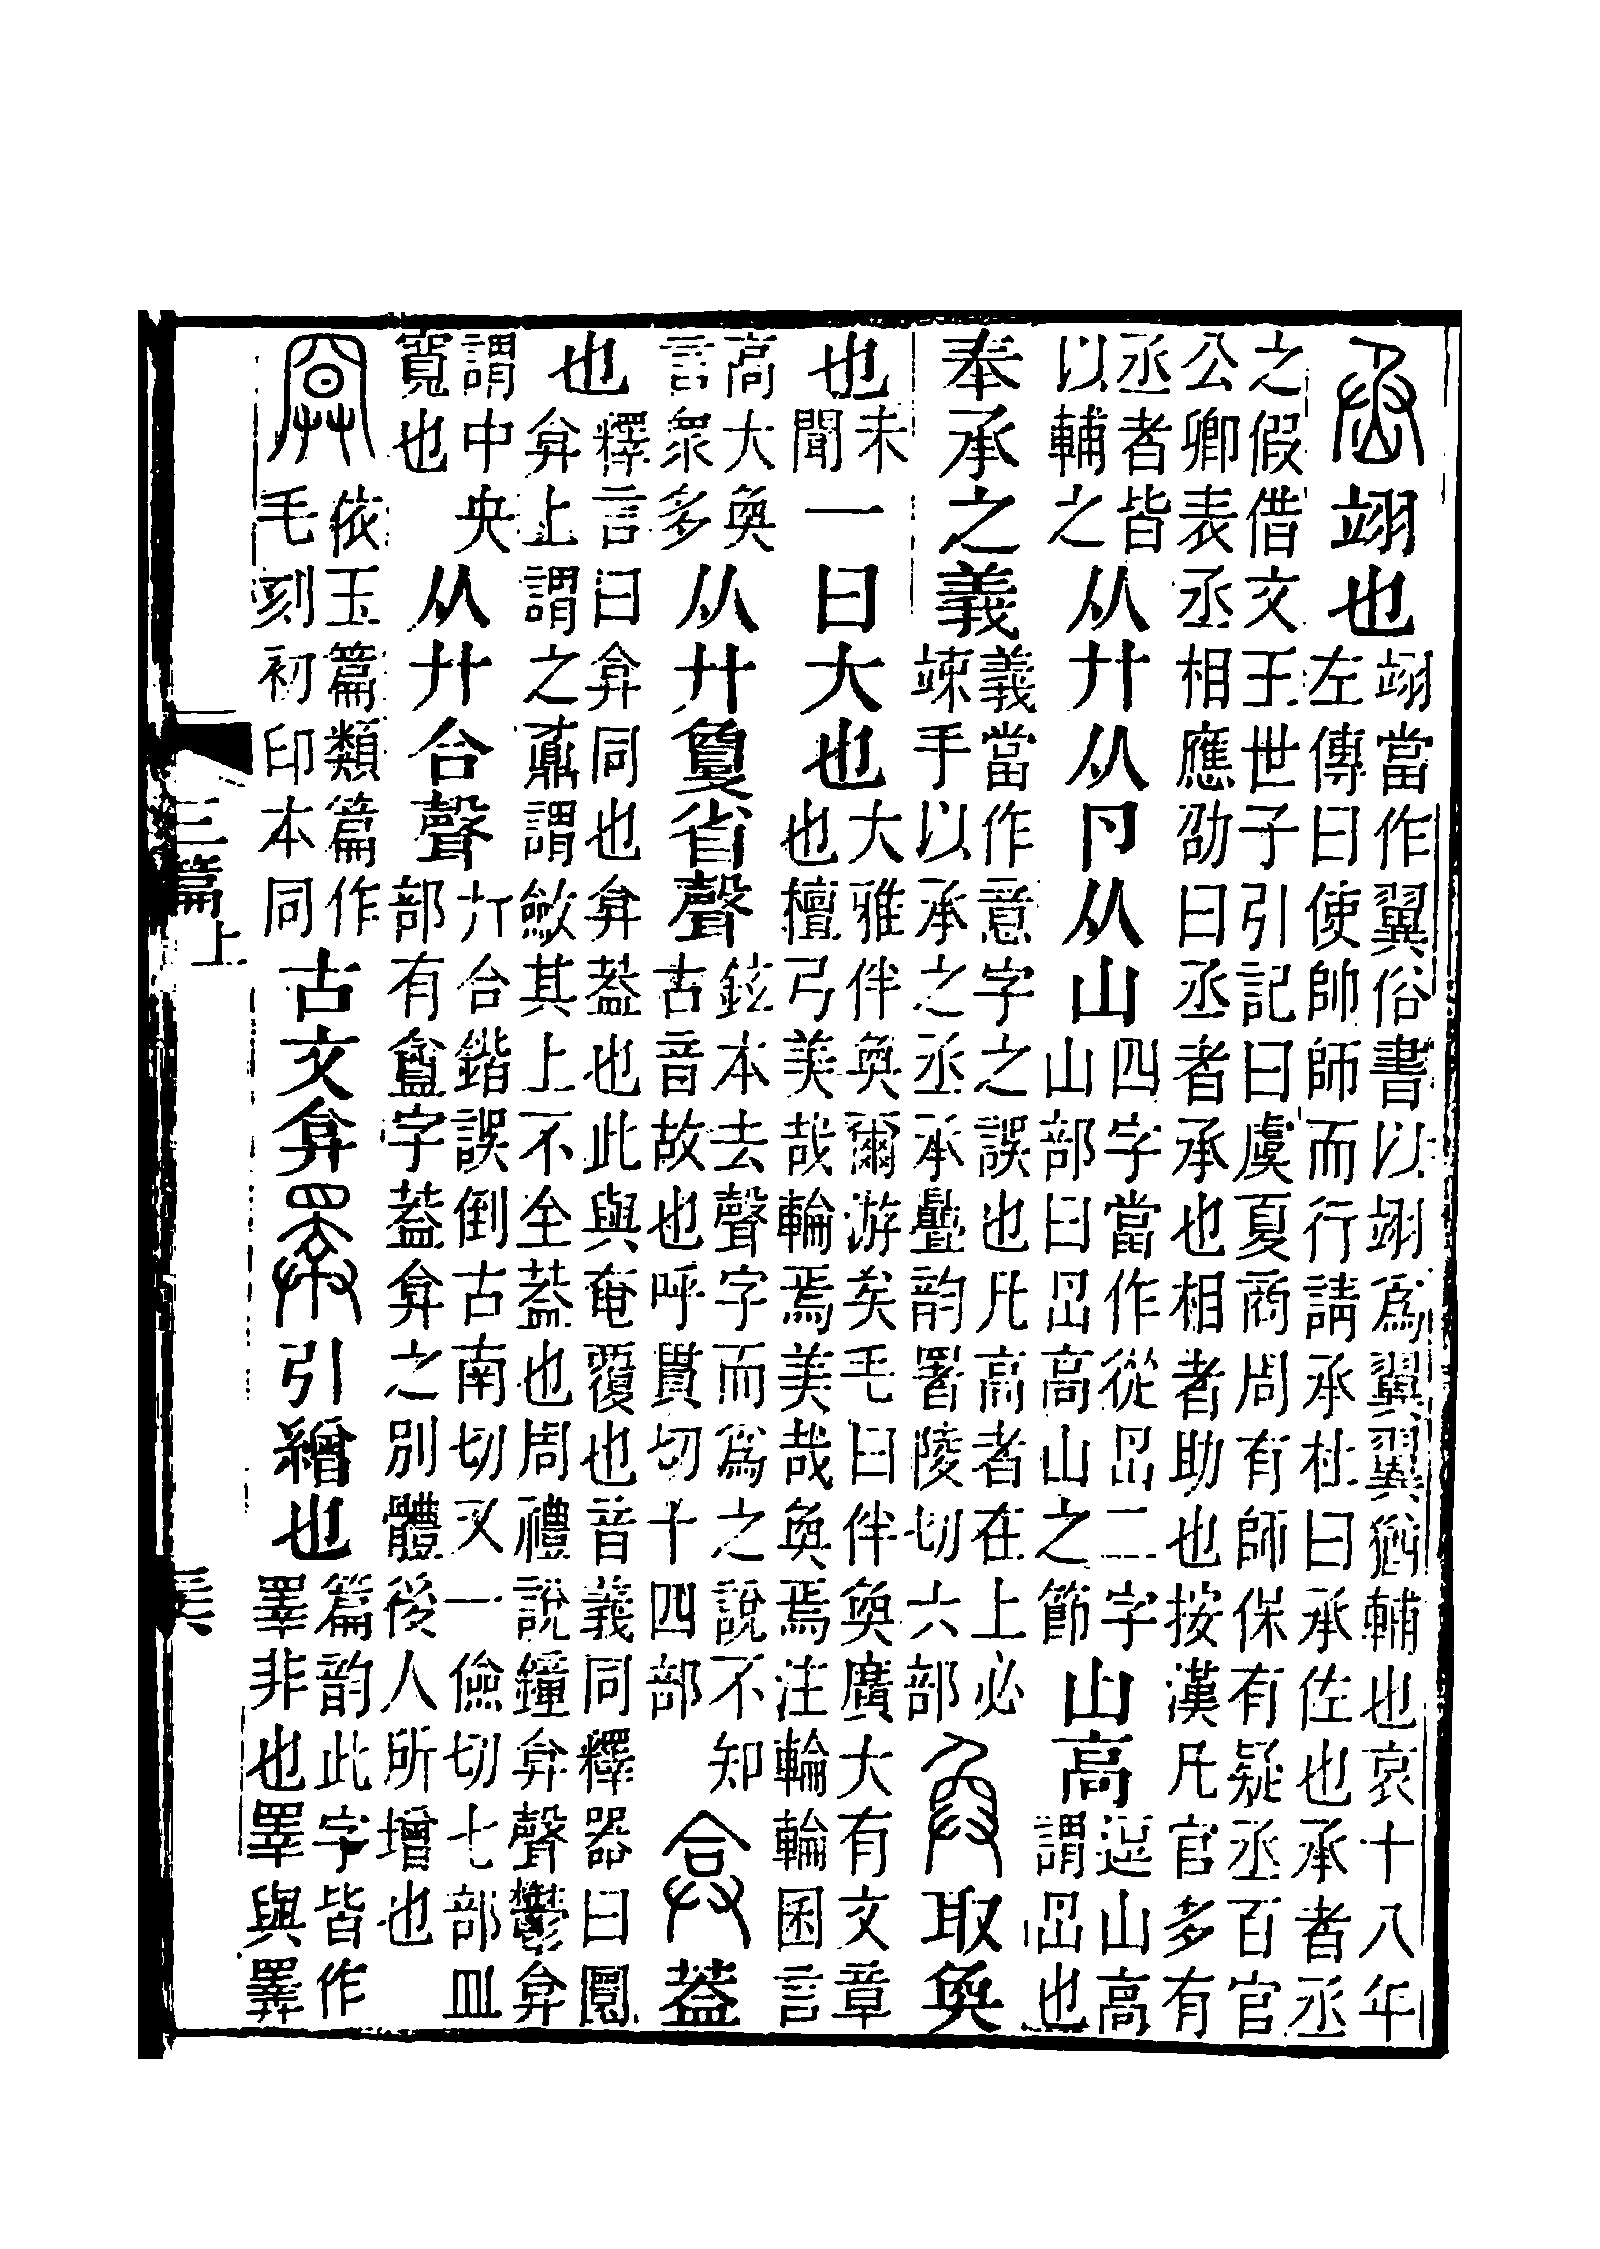 翊也
翊當作翼俗書以翊爲翼翼猶輔也哀十八年
左傳曰使帥師而行請承杜曰承佐也承者丞
之假借文王世子引記曰虞夏商周有師保有疑丞百官
公卿表丞相應劭曰丞者承也相者助也按漢凡官多有
丞者皆
以輔之
从廾从卪从山
四字當作從𡵂二字
山部曰𡵂高山之節
山高
逗山高
謂𡵂也
奉承之義
義當作意字之誤也凡高者在上必
竦手以承之丞承曡韵署陵切六部
奐取奐
也
未
聞
一曰大也
大雅伴奐爾游矣毛曰伴奐廣大有文章
也檀弓美哉輪焉美哉奐焉注輪輪囷言
高大奐
言衆多
从廾敻省聲
鉉本去聲字而爲之說不知
古音故也呼貫切十四部
弇蓋
也
釋言曰弇同也弇葢也此與奄覆也音義同釋器曰圜
弇上謂之鼒謂斂其上不全葢也周禮說鐘弇聲鬱弇
謂中央
寬也
从廾合聲
廾合鍇誤倒古南切又一儉切七部皿
部有𥁋字葢弇之別體後人所增也
依玉篇類篇作
毛刻初印本同
古文弇
引繒也
篇韵此字皆作
睪非也睪與
三篇上